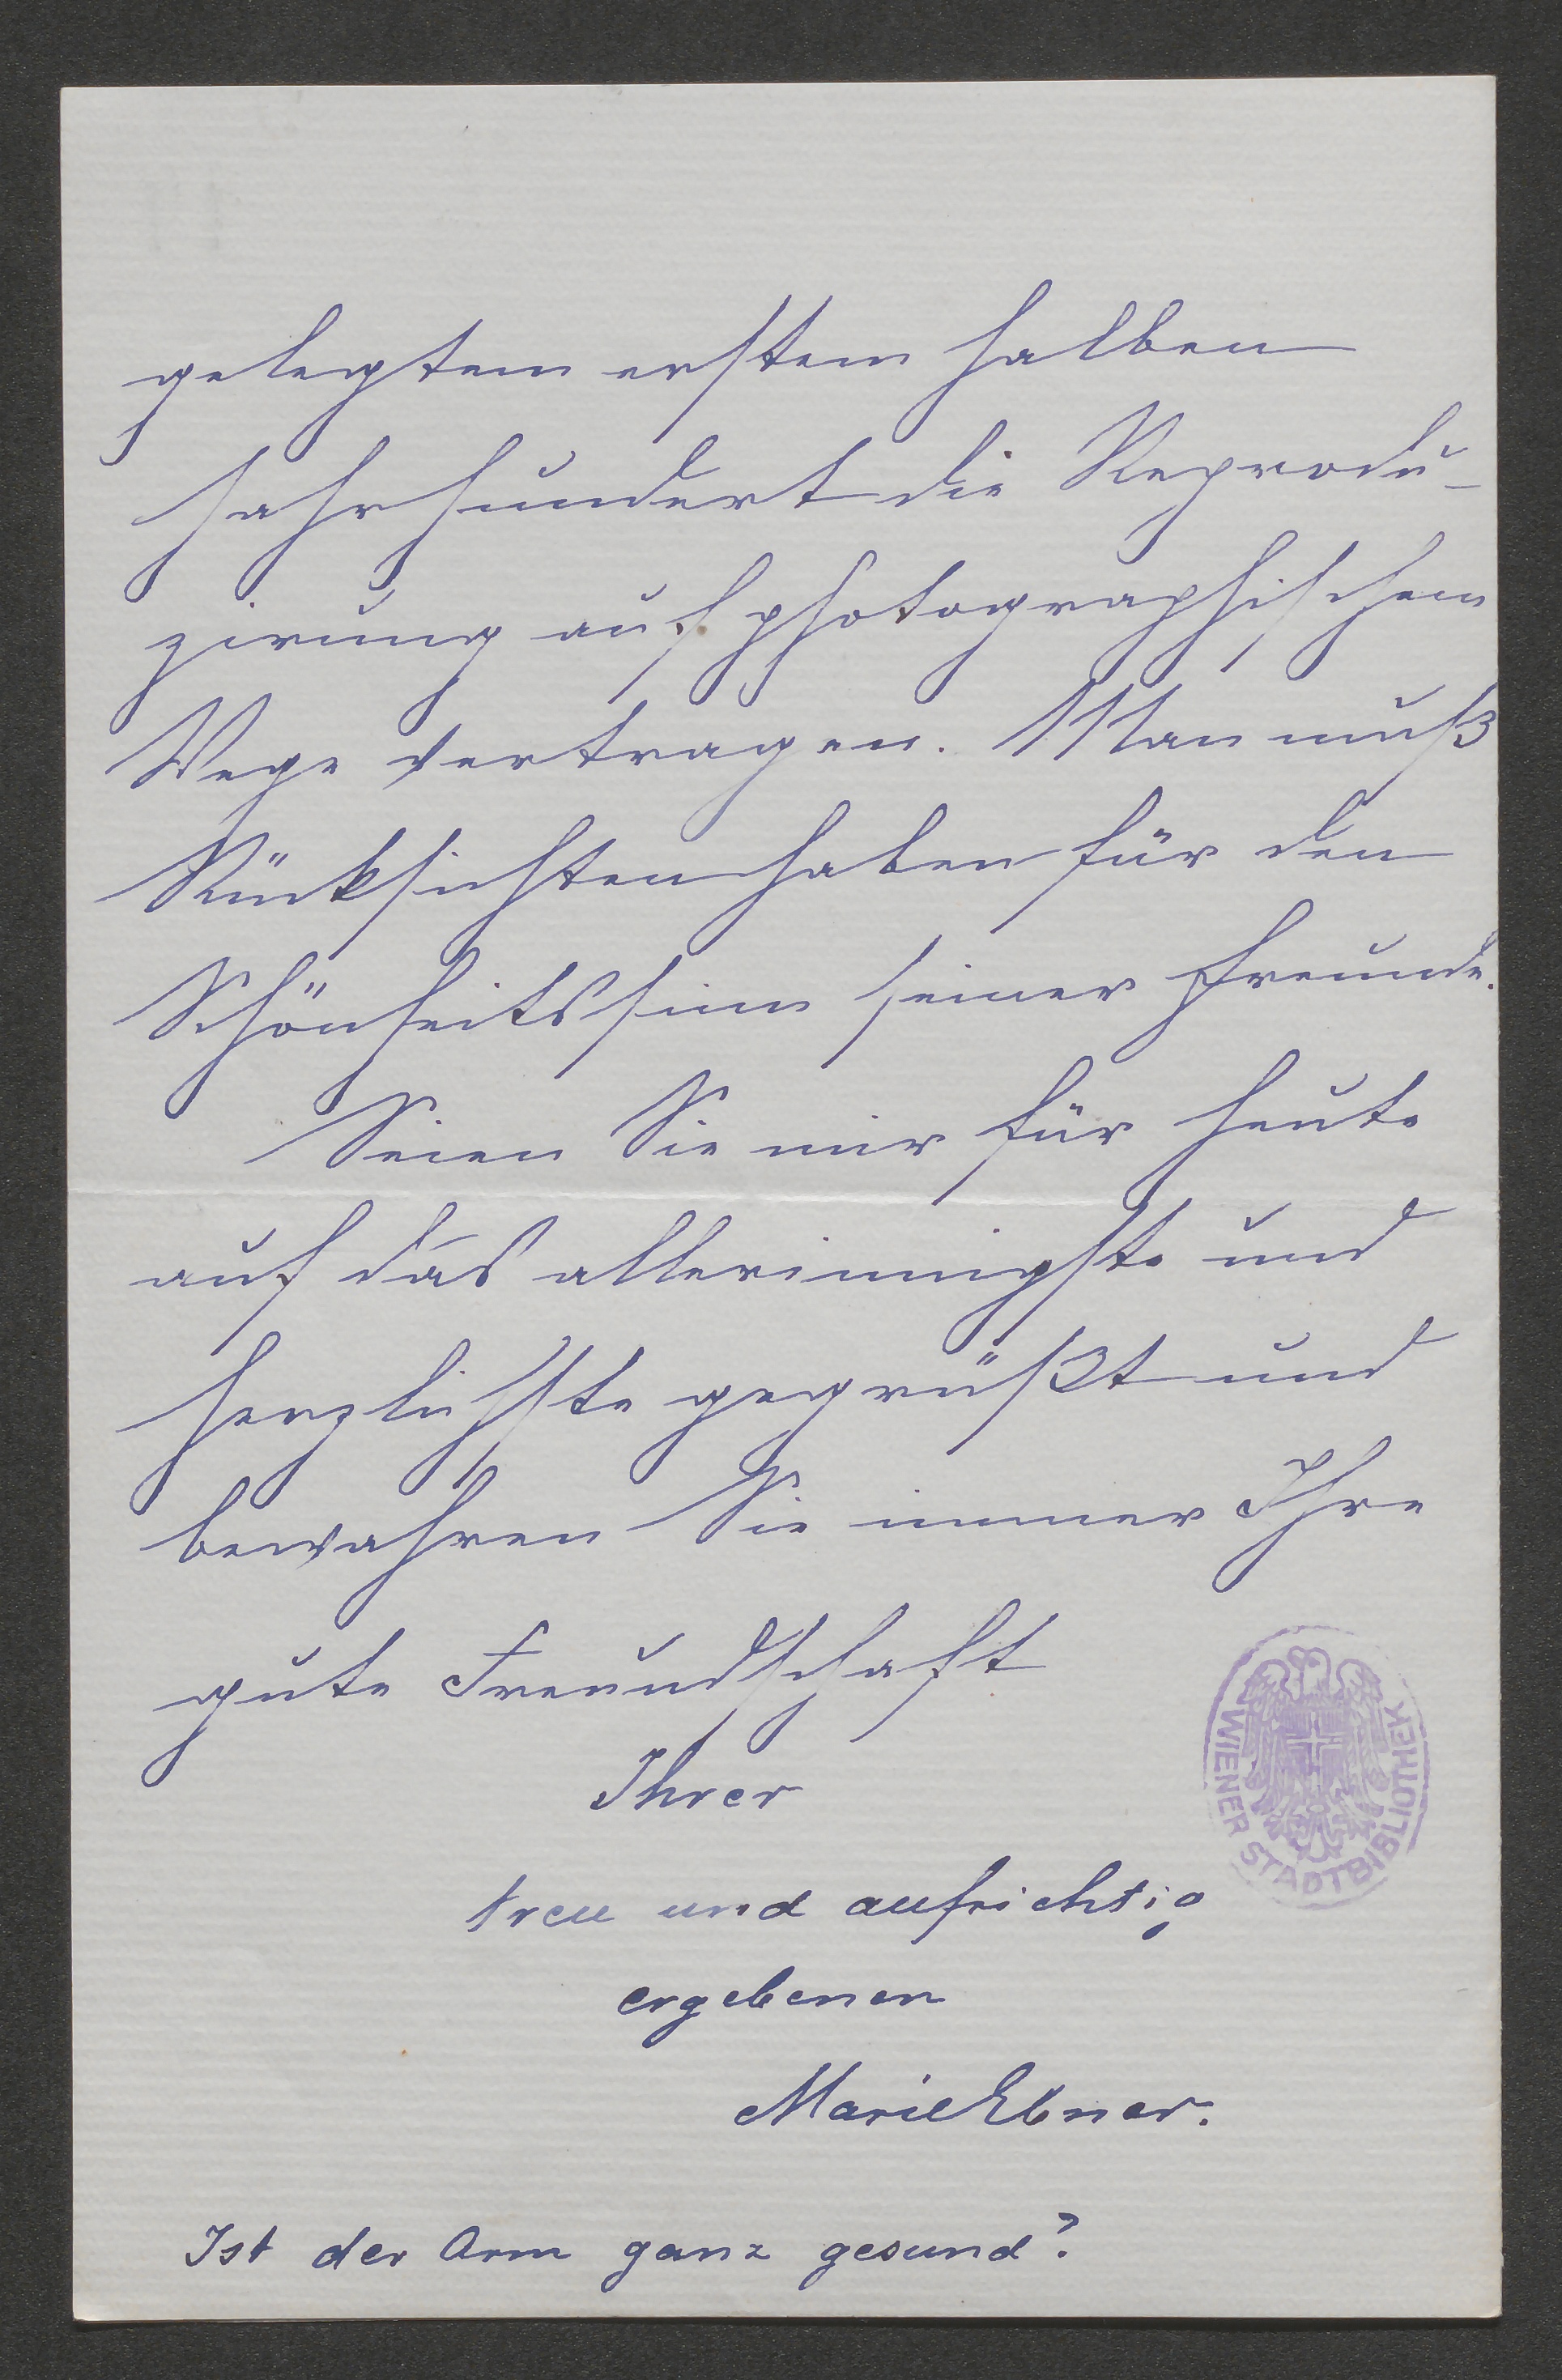 gelegtem erstem halben
Jahrhundert die Reprodu-
zirung auf photographischem
Wege vertragen. Man muß
Rücksichten haben für den
Schönheitssinn seiner Freunde.
Seien Sie mir für heute
auf das allerinnigste und
herzlichste gegrüßt und
bewahren Sie immer Ihre
gute Freundschaft
Ihrer
treu und aufrichtig
ergebenen
Marie Ebner.
Ist der Arm ganz gesund?
WIENER STADTBIBLIOTHEK